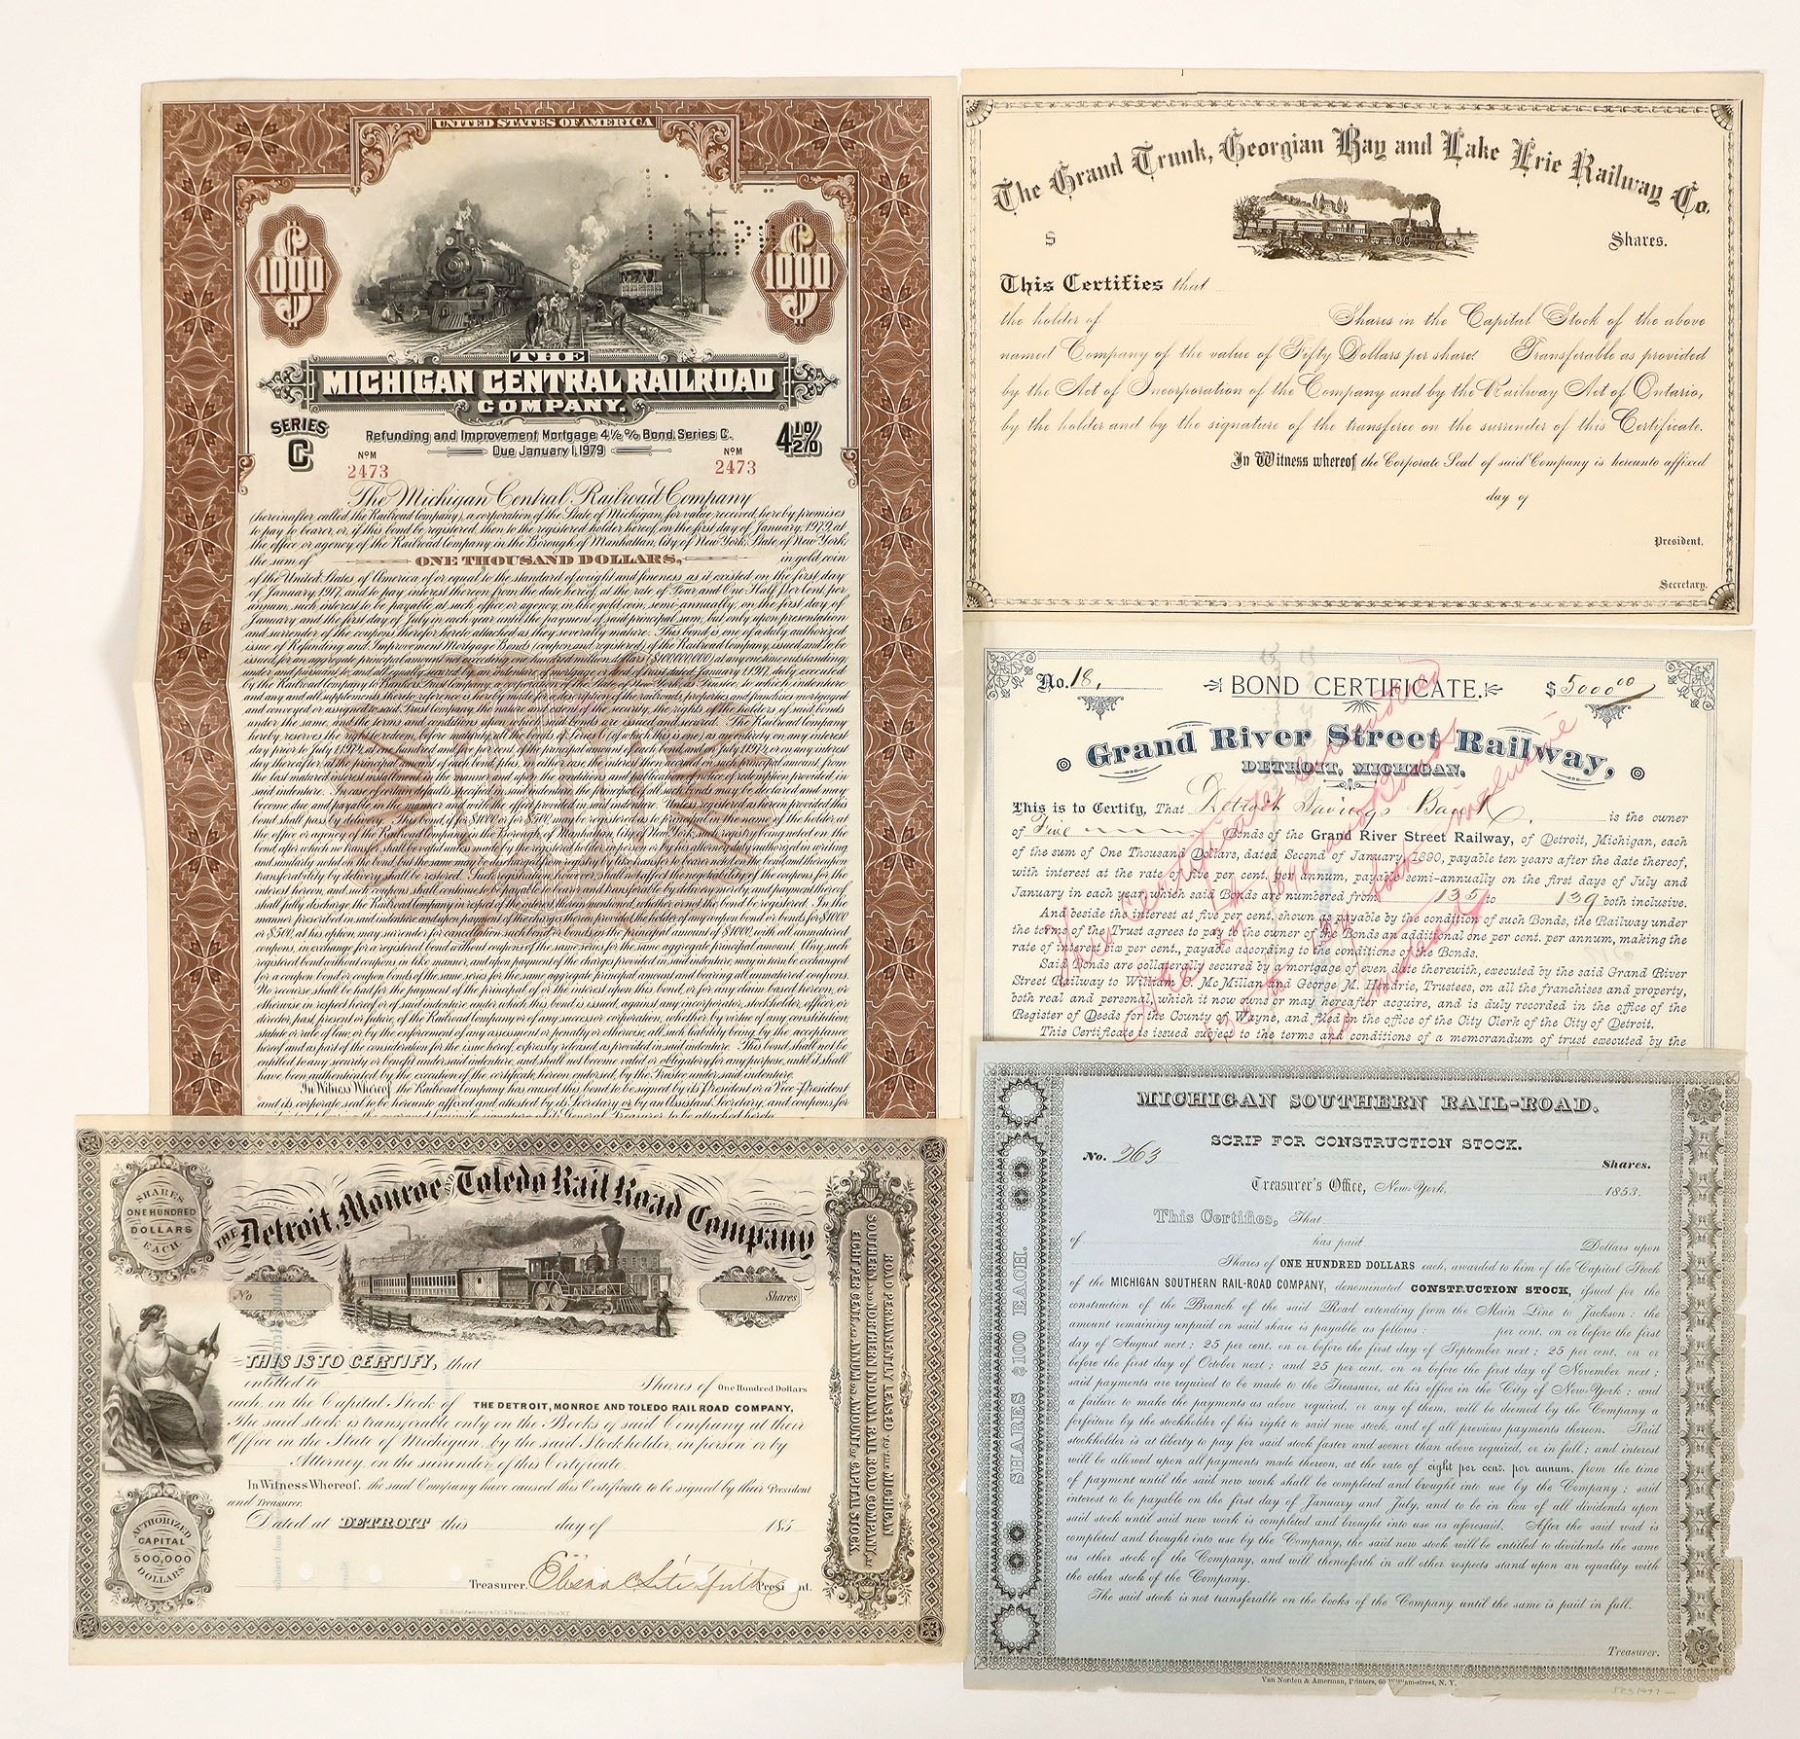 UNITED STATES OF AMERICA
$
1000
$
1000
THE
MICHIGAN CENTRAL RAILROAD
COMPANY.
SERIES
C
Refunding and Improvement Mortgage 4½% Bond, Series C.
Due January 1, 1979
4½%
NºM
2473
NºM
2473
The Michigan Central Railroad Company
(hereinafter called the Railroad Company), a corporation of the State of Michigan, for value received, hereby promises
to pay to bearer, or, if this bond be registered, then to the registered holder hereof, on the first day of January, 1979, at
the office or agency of the Railroad Company in the Borough of Manhattan, City of New York, State of New York,
the sum of ONE THOUSAND DOLLARS, in gold coin
of the United States of America of or equal to the standard of weight and fineness as it existed on the first day
of January, 1917, and to pay interest thereon from the date hereof, at the rate of Four and One Half Per Cent. per
annum, such interest to be payable at such office or agency, in like gold coin, semi-annually, on the first day of
January and the first day of July in each year until the payment of said principal sum, but only upon presentation
and surrender of the coupons therefor hereto attached as they severally mature. This bond is one of a duly authorized
issue of Refunding and Improvement Mortgage Bonds (coupon and registered) of the Railroad Company, issued and to be
issued, for an aggregate principal amount not exceeding one hundred million dollars ($100,000,000) at any one time outstanding,
under and pursuant to, and all equally secured by an indenture of mortgage or deed of trust dated January 1, 1917, duly executed
by the Railroad Company to Bankers Trust Company, a corporation of the State of New York, as Trustee, to which indenture
and any and all supplements thereto reference is hereby made for a description of the railroads, properties and franchises mortgaged
and conveyed or assigned to said Trust Company, the nature and extent of the security, the rights of the holders of said bonds
under the same, and the terms and conditions upon which said bonds are issued and secured. The Railroad Company
hereby reserves the right to redeem, before maturity, all the bonds of Series C (of which this is one) as an entirety on any interest
day prior to July 1, 1974, at one hundred and five per cent. of the principal amount of each bond, and on July 1, 1974, or on any interest
day thereafter, at the principal amount of each bond, plus, in either case, the interest then accrued on such principal amount from
the last matured interest installment, in the manner and upon the conditions and publication of notice of redemption provided in
said indenture. In case of certain defaults specified in said indenture the principal of all such bonds may be declared and may
become due and payable in the manner and with the effect provided in said indenture. Unless registered as herein provided this
bond shall pass by delivery. This bond, if for $1000 or for $500, may be registered as to principal in the name of the holder, at
the office or agency of the Railroad Company in the Borough of Manhattan, City of New York, such registry being noted on the
bond, after which no transfer shall be valid unless made by the registered holder in person or by his attorney duly authorized in writing
and similarly noted on the bond; but the same may be discharged from registry by like transfer to bearer noted on the bond, and thereupon
transferability by delivery shall be restored. Such registration, however, shall not affect the negotiability of the coupons for the
interest hereon, and such coupons shall continue to be payable to bearer and transferable by delivery merely, and payment thereof
shall fully discharge the Railroad Company in respect of the interest therein mentioned, whether or not the bond be registered. In the
manner prescribed in said indenture and upon payment of the charges therein provided, the holder of any coupon bond or bonds for $1000
or $500, at his option, may surrender for cancellation such bond or bonds, in the principal amount of $1000, with all unmatured
coupons, in exchange for a registered bond without coupons of the same series for the same aggregate principal amount. Any such
registered bond without coupons in like manner, and upon payment of the charges provided in said indenture, may in turn be exchanged
for a coupon bond or coupon bonds of the same series for the same aggregate principal amount and bearing all unmatured coupons.
No recourse shall be had for the payment of the principal of, or the interest upon this bond, or for any claim based hereon, or
otherwise in respect hereof or of said indenture under which this bond is issued, against any incorporator, stockholder, officer, or
director, past, present or future, of the Railroad Company or of any successor corporation, whether by virtue of any constitution,
statute or rule of law, or by the enforcement of any assessment or penalty or otherwise, all such liability being, by the acceptance
hereof and as part of the consideration for the issue hereof, expressly released as provided in said indenture. This bond shall not be
entitled to any security or benefit under said indenture, and shall not become valid or obligatory for any purpose, until it shall
have been authenticated by the execution of the certificate, hereon endorsed, by the Trustee under said indenture.
In Witness Whereof, the Railroad Company has caused this bond to be signed by its President or a Vice-President
and its corporate seal to be hereunto affixed and attested by its Secretary or by an Assistant Secretary, and coupons for
The Grand Trunk, Georgian Bay and Lake Erie Railway Co.
$
Shares.
This Certifies that
the holder of Shares in the Capital Stock of the above
named Company of the value of Fifty Dollars per share. Transferable as provided
by the Act of Incorporation of the Company and by the Railway Act of Ontario,
by the holder and by the signature of the transferee on the surrender of this Certificate.
In Witness whereof the Corporate Seal of said Company is hereunto affixed
day of
President.
Secretary.
No. 18,
BOND CERTIFICATE.
$ 5000 00
Grand River Street Railway,
DETROIT, MICHIGAN.
This is to Certify, That Detroit Savings Bank is the owner
of Five Bonds of the Grand River Street Railway, of Detroit, Michigan, each
of the sum of One Thousand Dollars, dated Second of January, 1890, payable ten years after the date thereof,
with interest at the rate of five per cent. per annum, payable semi-annually on the first days of July and
January in each year, which said Bonds are numbered from 135 to 139 both inclusive.
And beside the interest at five per cent. shown as payable by the condition of such Bonds, the Railway under
the terms of the Trust agrees to pay to the owner of the Bonds an additional one per cent. per annum, making the
rate of interest six per cent., payable according to the conditions of the Bonds.
Said Bonds are collaterally secured by a mortgage of even date therewith, executed by the said Grand River
Street Railway to William C. McMillan and George M. Hendrie, Trustees, on all the franchises and property,
both real and personal, which it now owns or may hereafter acquire, and is duly recorded in the office of the
Register of Deeds for the County of Wayne, and filed in the office of the City Clerk of the City of Detroit.
This Certificate is issued subject to the terms and conditions of a memorandum of trust executed by the
SHARES
ONE HUNDRED
DOLLARS
EACH.
THE Detroit, Monroe and Toledo Rail Road Company
No
Shares
THIS IS TO CERTIFY, that
entitled to Shares of One Hundred Dollars
each, in the Capital Stock of THE DETROIT, MONROE AND TOLEDO RAIL ROAD COMPANY,
The said stock is transferable only on the Books of said Company at their
Office in the State of Michigan, by the said Stockholder, in person or by
Attorney, on the surrender of this Certificate.
In Witness Whereof, the said Company have caused this Certificate to be signed by their President
and Treasurer.
Dated at DETROIT this day of 185
AUTHORIZED
CAPITAL
500,000
DOLLARS
Treasurer.
President.
ROAD PERMANENTLY LEASED TO THE MICHIGAN
SOUTHERN AND NORTHERN INDIANA RAIL ROAD COMPANY, AT
EIGHT PER CENT. PER ANNUM ON AMOUNT OF CAPITAL STOCK
MICHIGAN SOUTHERN RAIL-ROAD.
SCRIP FOR CONSTRUCTION STOCK.
No. 263
Shares.
Treasurer's Office, New-York, 1853.
This Certifies, That
of has paid Dollars upon
Shares of ONE HUNDRED DOLLARS each, awarded to him of the Capital Stock
of the MICHIGAN SOUTHERN RAIL-ROAD COMPANY, denominated CONSTRUCTION STOCK, issued for the
construction of the Branch of the said Road extending from the Main Line to Jackson: the
amount remaining unpaid on said share is payable as follows: per cent. on or before the first
day of August next; 25 per cent. on or before the first day of September next; 25 per cent. on or
before the first day of October next; and 25 per cent. on or before the first day of November next;
said payments are required to be made to the Treasurer, at his office in the City of New-York; and
a failure to make the payments as above required, or any of them, will be deemed by the Company a
forfeiture by the stockholder of his right to said new stock, and of all previous payments thereon. Said
stockholder is at liberty to pay for said stock faster and sooner than above required, or in full; and interest
will be allowed upon all payments made thereon, at the rate of eight per cent. per annum, from the time
of payment until the said new work shall be completed and brought into use by the Company; said
interest to be payable on the first day of January and July, and to be in lieu of all dividends upon
said stock until said new work is completed and brought into use as aforesaid. After the said road is
completed and brought into use by the Company, the said new stock will be entitled to dividends the same
as other stock of the Company, and will thenceforth in all other respects stand upon an equality with
the other stock of the Company.
The said stock is not transferable on the books of the Company until the same is paid in full.
Treasurer.
SHARES $100 EACH.
Van Norden & Amerman, Printers, 60 William-street, N. Y.